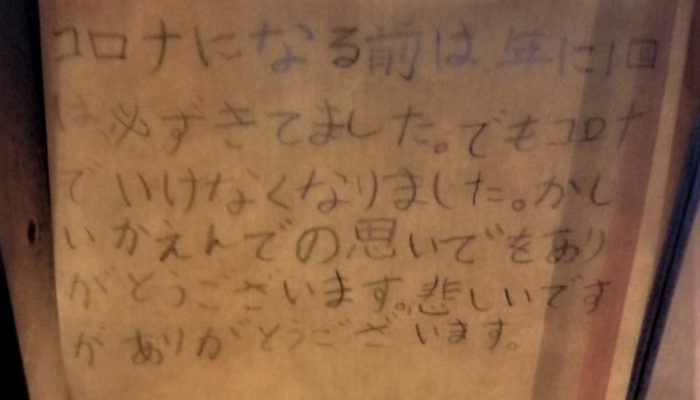 コロナになる前は、年に1回
は必ずきてました。でもコロナ
でいけなくなりました。かし
いかえんでの思いでをあり
がとうございます。悲しいです
がありがとうございます。